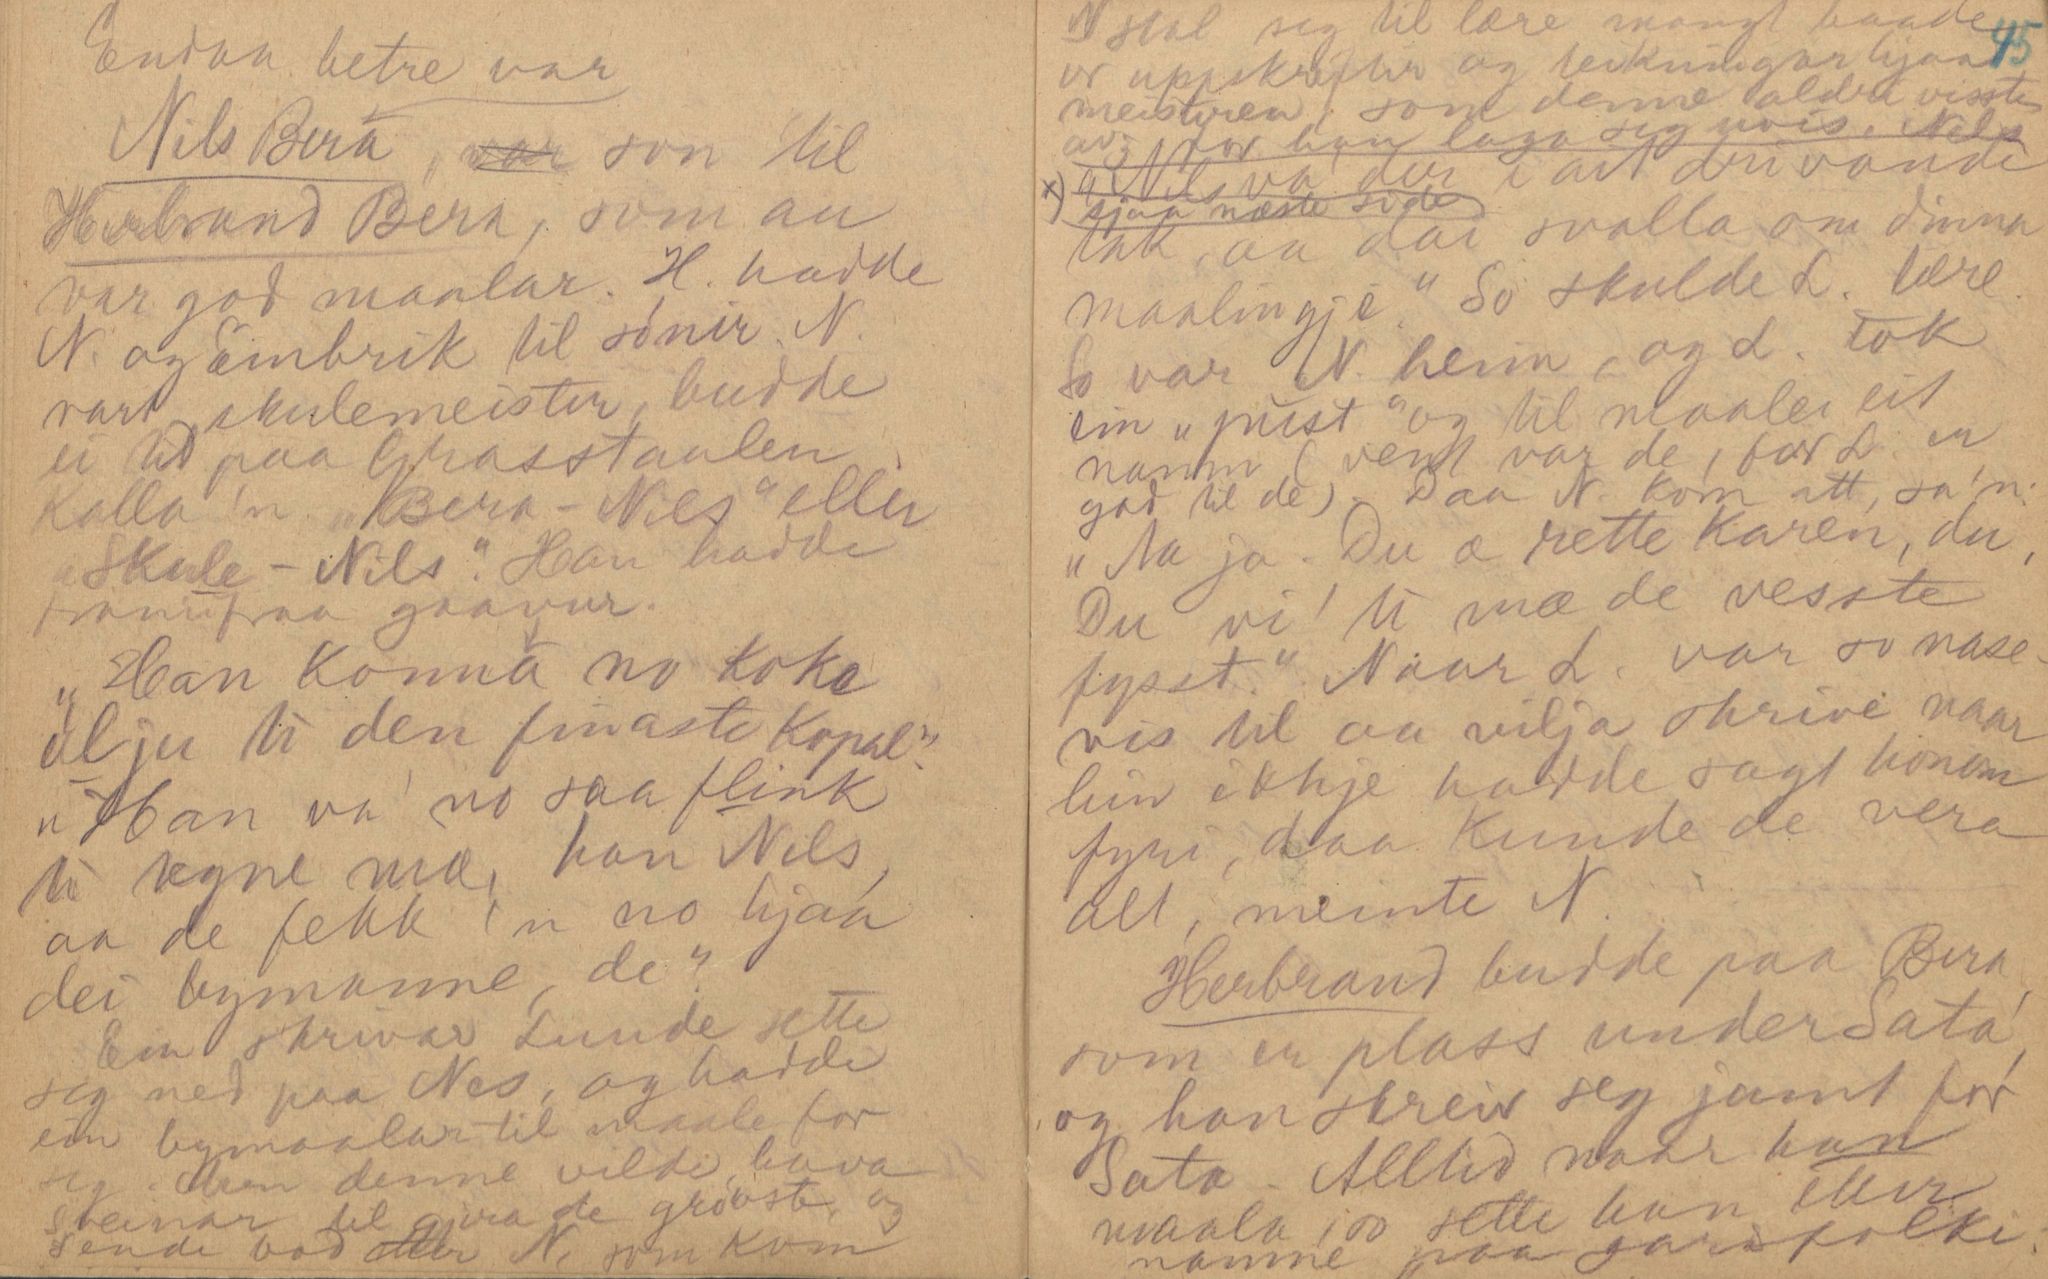 Endaa betre var
Nils Bera, var son til
Herbrand Bera, som au
var god maalar. H. hadde
N. og Embrik til sønir. N.
vart skulemeister, budde
ei tid paa Grasstaulen
Kalla 'n "Bera-Nils" eller
"Skule-Nils". Han hadde
framifraa gaavur.
"Han konna no koke
ålju ti den finaste Kopal".
"Han va' no saa flink
ti tegne mæ, han Nils,
aa de fekk 'n no hjaa
dei bymanne, de"
Ein skrivar Lunde sette
seg ned paa Nes, og hadde
ein bymaalar til maale for
seg. Men denne vilde hava
til gjera de grøvste, og
sende bod N. som kom
N stal seg til lære mangt baade
or uppskrifter og teikningar hjaa
meisteren, som denne aldri visste
av, for han laga seg
x) "Nils va' der i art drivande
sjaa næste side
tak, aa dai svalla om dinna
maalingje." So skulde L. lære.
So var N. heim, og L. tok
ein "pust" og til maalei eit
namn (vent var de, for L. er
god til de). Daa N. kom att, sa 'n:
"Aa ja. Du æ rette Karen, du,
Du vi' ti mæ de vesste
fysst." Naar L. var so nase-
vis til aa vilja skrive naar
hin ikkje hadde sagt honom
fyri, daa kunde de vera
alt, meinte N.
Herbrand budde paa Bera,
som er plass under Sata,
og han skreiv seg jamt for
Sata. Alltid naar han
maala, so sette han
namne paa gardsfolki.
45